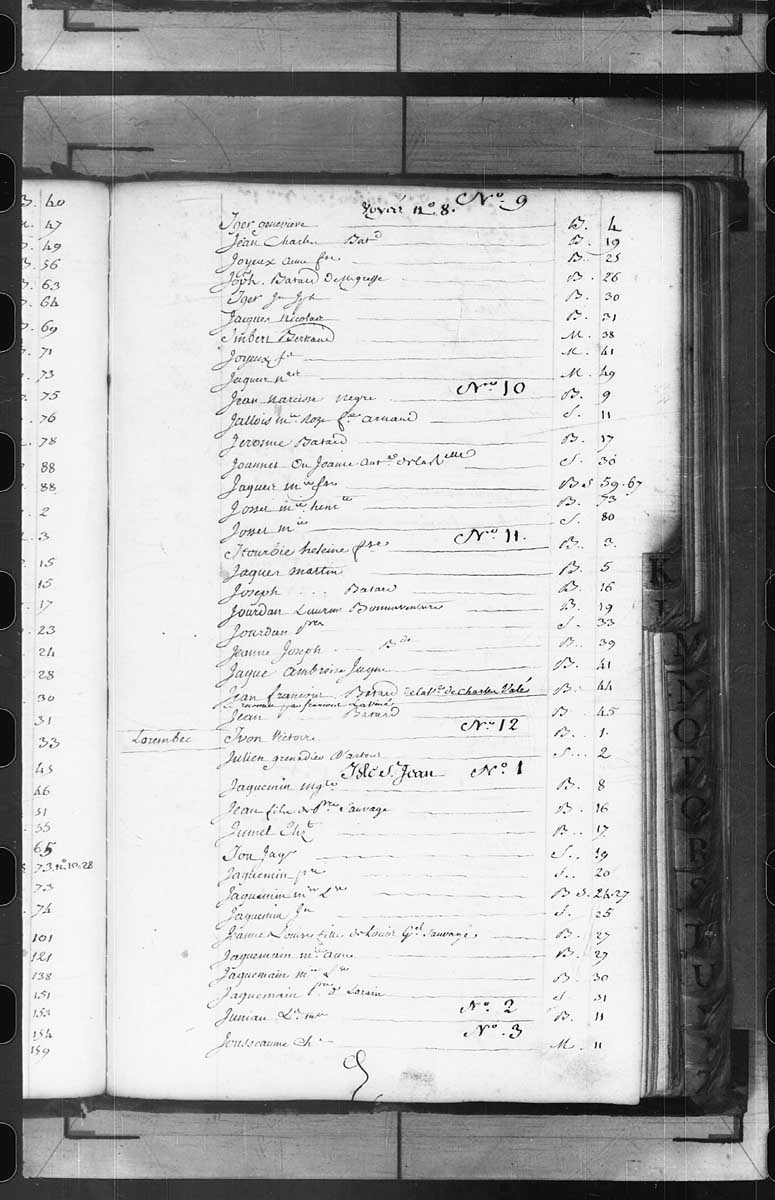 40
47
49
56
63
64
69
71
73
75
76
78
88
88
2
3
15
15
17
23
24
28
30
31
33
45
46
51
55
65
73. no 10.28
73
74
101
121
138
151
153
154
159
No. 9
no 8.
Iger genevieve B. 4
Jean Charles Bat.d B. 19
Joyeux anne fse B. 25
Joph. Batard de negresse B. 26
Iger Jn Jph B. 30
Jacques nicolas B. 31
Imbert Bertrand M. 38
Joyeux M. 41
Jaques M. 49
No. 10
Jean narcisse negre B. 9
Jallois mie Roze fse arnaud S. 11
Jerosme Batard B. 17
Joannes ou Joanis S. 30
Jaques mie fse B S 59. 67
Josset mie henrie B. 73
Josset mie S. 80
No. 11.
Itourbie heleine fse B. 3.
Jaques martin B. 5
Joseph ... Batard B. 16
Jourdan Laurens Bonnaventure B. 19
Jourdan pre S. 33
Jeanne Joseph B.de B. 39
Jaque ambroise Juque B. 41
Jean francois Batard de la ve. de Charles Valé B. 44
Jean Batard B. 45
No. 12
Lorembec Ivon Victoire B. 1.
Julien grenadier d'artois S. 2
Isle St Jean No. 1
Jaquemin B. 8
Jean fils de pre Sauvage B. 16
Jumel Elizt B. 17
Jou Jaqs S. 19
Jaquemin pre S. 20
Jaquemin mie Lse B S. 24.27
Jaquemin Jn S. 25
Jeanne Louise fille de Louis Gal Sauvage B. 27
Jaquemain mie anne B. 27
Jaquemain mie Lse B. 30
Jaquemain pre dt Lorain S. 31
No. 2
Juniau B. 11
No. 3
Jousseaume Ch M. 11
K
L
M
N
O
P
Q
R
S
T
U